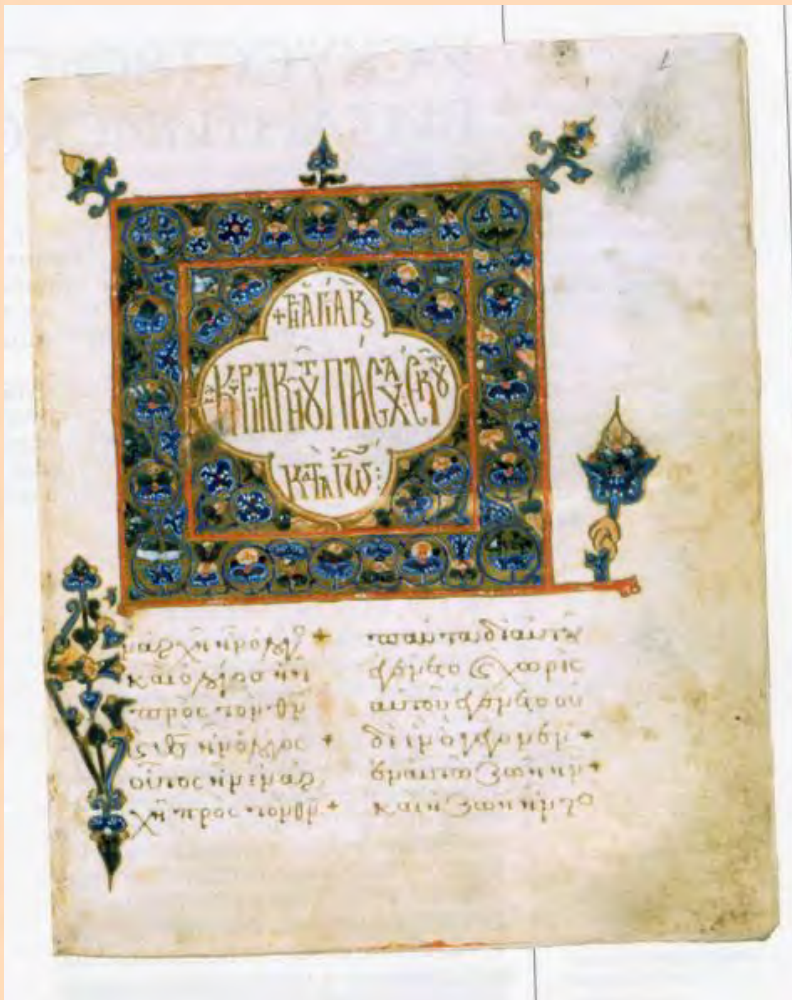 +ΤΗ ΑΓΙΑ Κ̣ϛ
ΚΥΡΙΑΚΗ ΤΟΥ ΠΑΣΧΑ ΕΚ ΤΟΥ
ΚΑΤΑ ΙΩ:
ν ἀρχῆ ἦν ὁ λόγο +
καὶ ὁ λόγος ἦν
πρὸς τὸν θν
ϗ θς ἦν ὁ λόγος +
οὗτος ἦν ἐν ἀρ
χῆ πρὸς τὸν θν +
πάντα δι αὐτοῦ
ἐγένετο ϗ χωρὶς
αὐτοῦ ἐγένετο οὐ
δὲ ἓν ὃ γέγονεν +
ἐν αὐτῶ ζωὴ ἦν +
καὶ ἡ ζωὴ ἦν τὸ